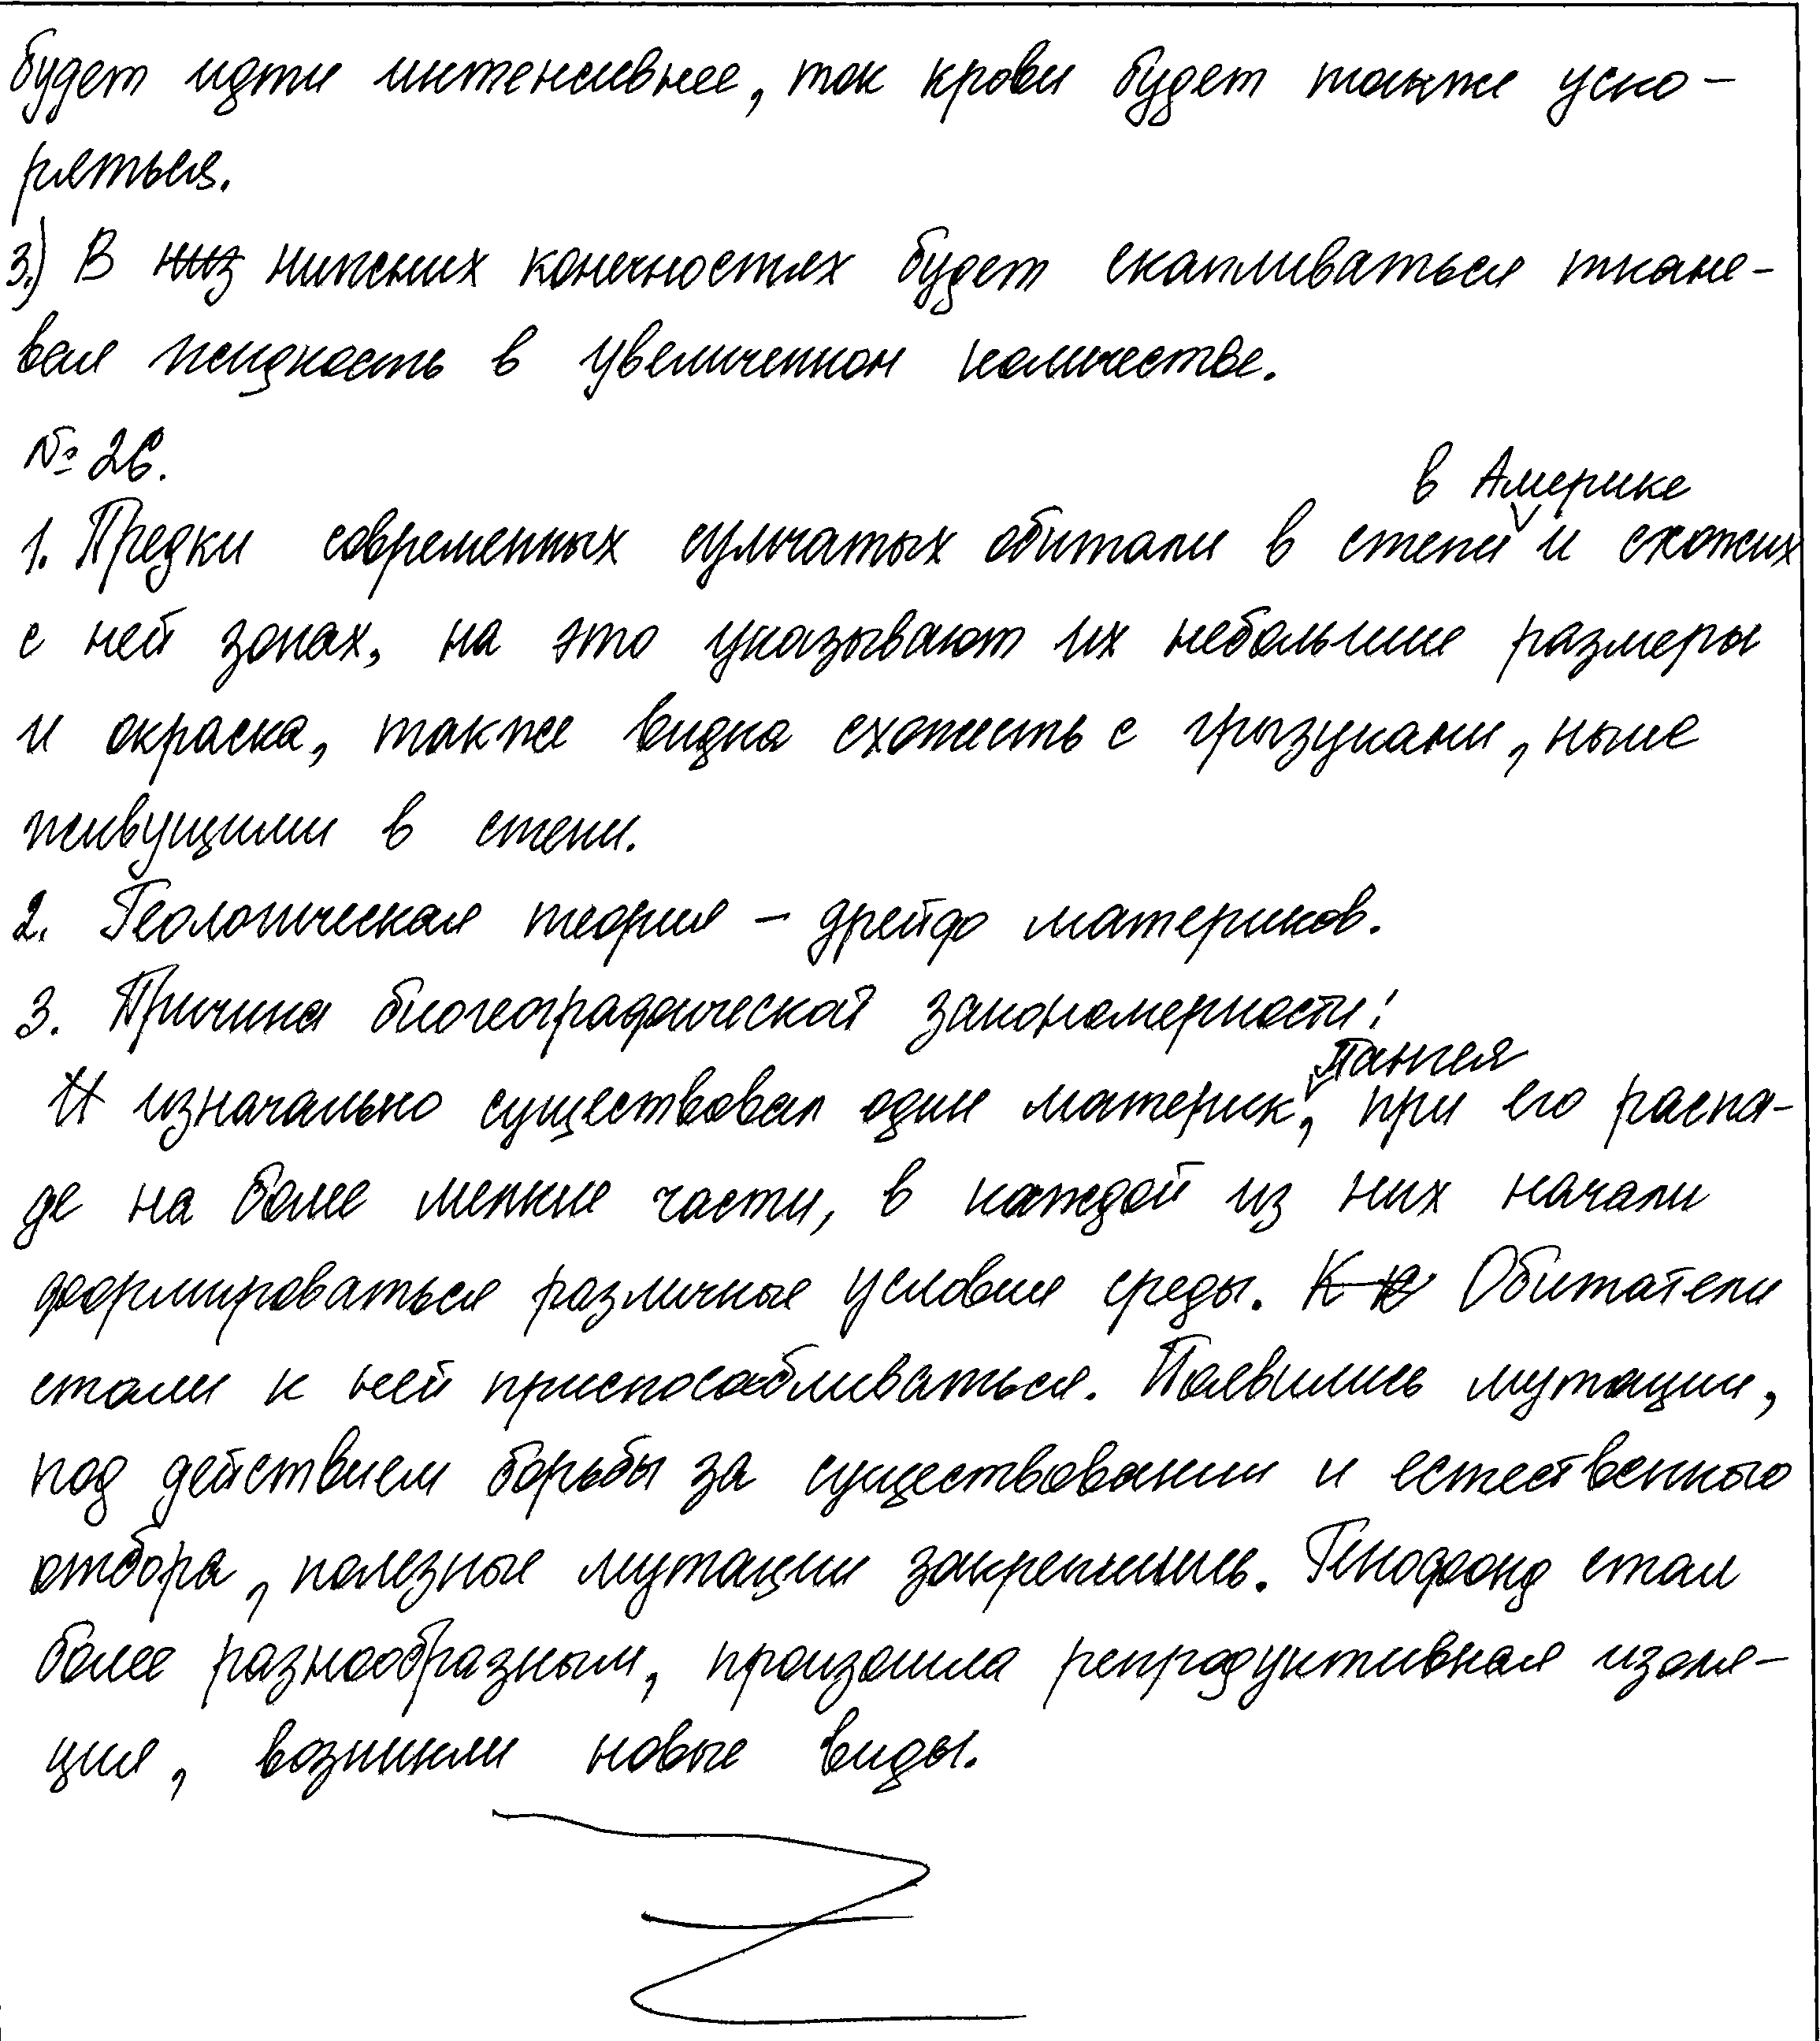 будет идти интенсивнее, ток крови будет также уско-
ряться.
3.) В низ нижних конечностях будет скапливаться ткане-
вая жидкость в увеличенном количестве.
№ 26.
в Америке
1. Предки современных сумчатых обитали в степи и схожих
с ней зонах, на это указывают их небольшие размеры
и окраска, также видна схожесть с грызунами, ныне
живущими в степи.
2. Геологическая теория – дрейф материков.
3. Причина биогеографической закономерности:
Пангея
И изначально существовал один материк, при его распа-
де на более мелкие части, в каждой из них начали
формироваться различные условия среды. К Обитатели
стали к ней приспосабливаться. Появились мутации,
под действием борьбы за существовании и естественного
отбора, полезные мутации закрепились. Генофонд стал
более разнообразным, произошла репродуктивная изоля-
ция, возникли новые виды.